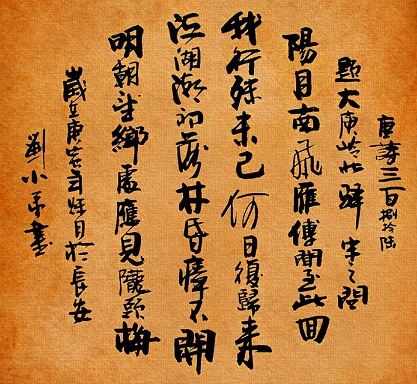 唐詩三百捌拾陆
題大庾岭北驛 宋之問
陽月南飛雁傳聞至此回
我行殊未已何日復歸来
江湖潮初落林昏瘴不開
明朝望鄉處應見隴頭梅
嵗在庚寅秋月於長安
劉小平書